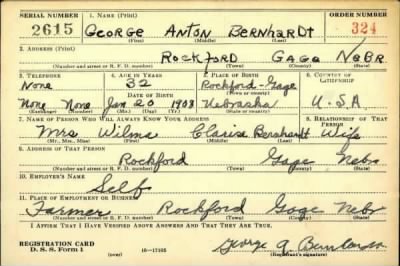 SERIAL NUMBER 1. NAME (Print) ORDER NUMBER
2615 GEORGE ANTON BERNHARDT 324
(First) (Middle) (Last)
2. ADDRESS (Print)
ROCKFORD GAGE NEBR.
(Number and street or R. F. D. number) (Town) (County) (State)
3. TELEPHONE 4. AGE IN YEARS 5. PLACE OF BIRTH 6. COUNTRY OF CITIZENSHIP
None 32 Rockford-Gage
DATE OF BIRTH (Town or county)
None None Jan 20 1908 Nebraska U.S.A.
(Exchange) (Number) (Mo.) (Day) (Yr.) (State or country)
7. NAME OF PERSON WHO WILL ALWAYS KNOW YOUR ADDRESS 8. RELATIONSHIP OF THAT PERSON
Mrs Wilma Bernhardt Wife
(Mr., Mrs., Miss) (First) (Middle) (Last)
9. ADDRESS OF THAT PERSON
Rockford Gage Nebr
(Number and street or R. F. D. number) (Town) (County) (State)
10. EMPLOYER'S NAME
Self
11. PLACE OF EMPLOYMENT OR BUSINESS
Farmer Rockford Gage Nebr
(Number and street or R. F. D. number) (Town) (County) (State)
I AFFIRM THAT I HAVE VERIFIED ABOVE ANSWERS AND THAT THEY ARE TRUE.
REGISTRATION CARD George A
D. S. S. Form 1 (over) 16-17105 (Registrant's signature)